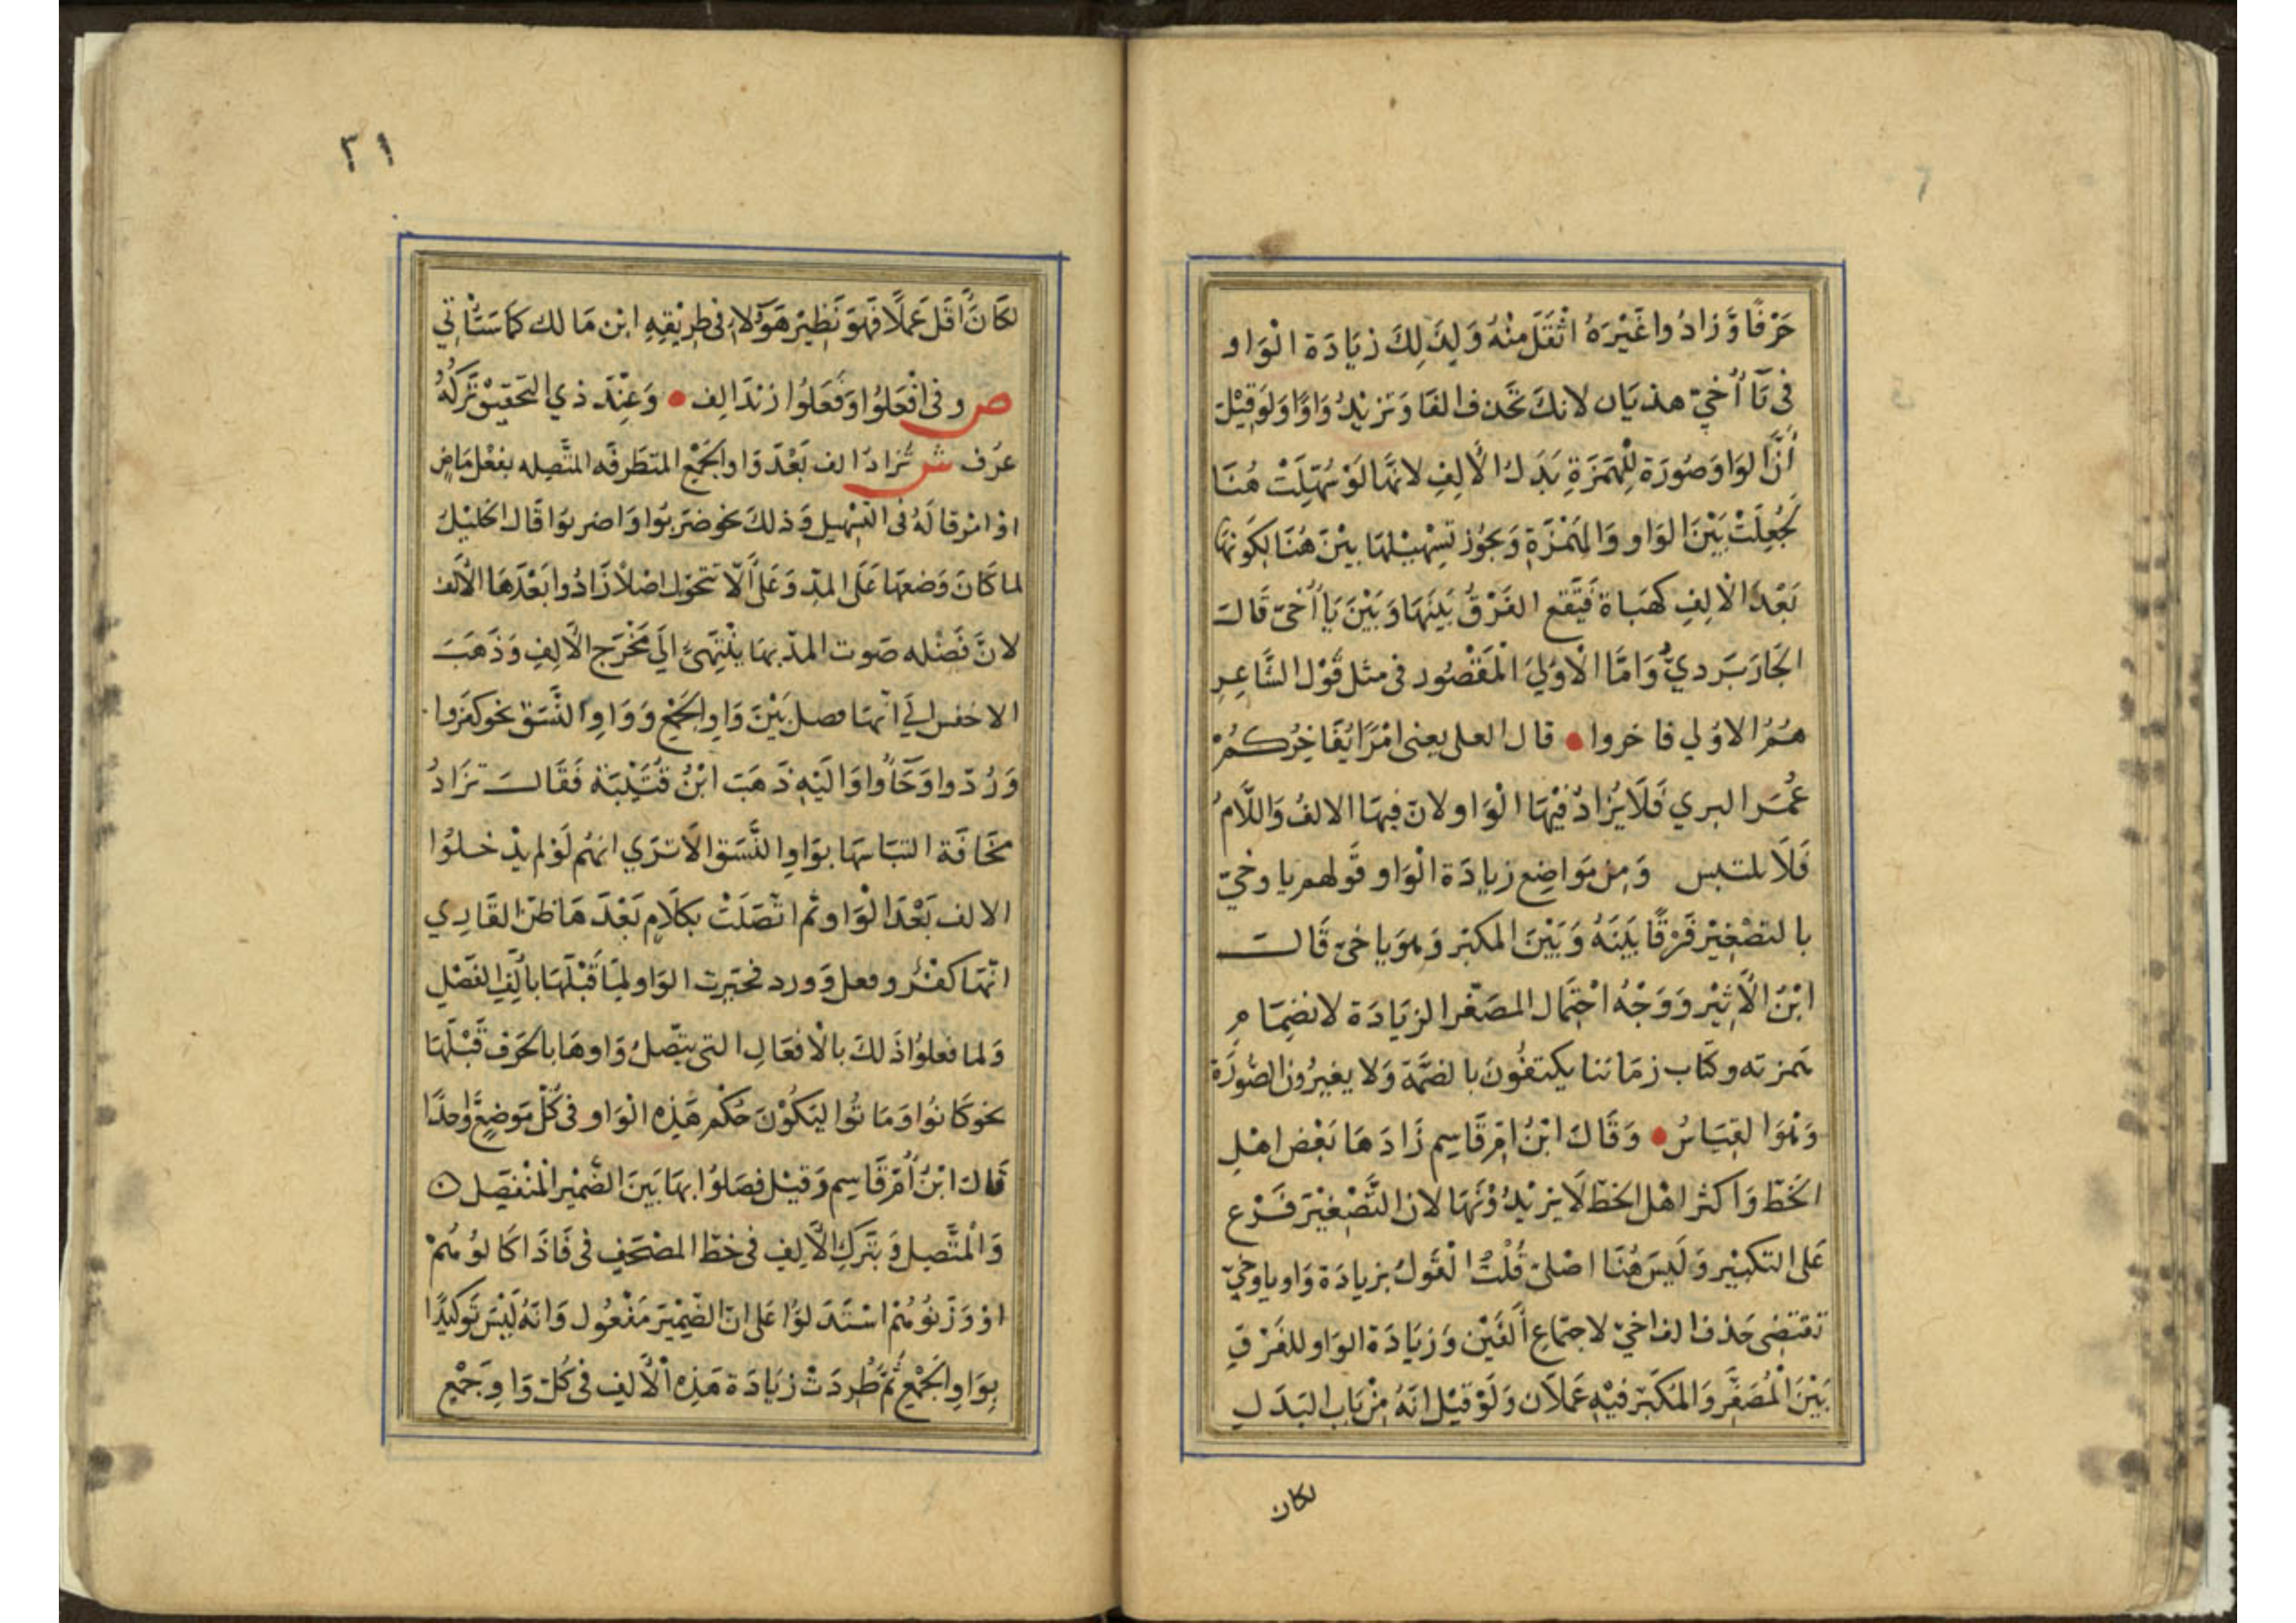 حَرْفًا وَزادُوا غَيْرَهُ اثْقَلَ مِنْهُ وَلِذَلِكَ زيَادَة الْوَاو
فِى يَآ أُخَيّ هذيَان لانكَ تَحْذف الفَا وَتزيْدُ وَاوًا وَلَوقِيْلَ
أنَّ الوَاوَ صُورَة لِلْهَمزَةِ بَدَلُ الْأَلِفِ لانهَا لَوْ سُهِّلَتْ هُنَا
لَجُعِلَتْ بَيْنَ الوَاو وَالهَمْزَةِ وَيجُوز تسْهِيْلهَا بيْنَ هُنَا لِكَونهَا
بَعْدَ الْالِفِ كهَبَاة فَيَقع الفَرْقُ بَيْنَهَا وَبَيْنَ يَا أُخَيّ قَالَ
الجَارَبَردِيُّ وَامَّا الْأوْلَي الْمَقْصُور فى مثل قَوْل الشَّاعِرِ
هُمُ الاوُلي فاخروا • قال العلى يعنى امْرَا يُفَاخِرُكمُ
عُمَر البري فَلَا يُزَادُ فِيْهَا الْوَاو لانّ فِيهَا الالفُ وَاللَّامُ
فَلَا يلتبس وَمِن مَوَاضِع زيادَة الْوَاو قَولهم يا وخيّ
بالتصْغِيْر فَرْقًا بَيْنَهُ وَبَيْنَ المكبّر وَهوَ يا خىّ قَالَ
ابْنُ الْأَثِيْر وَوَجْهُ احْتِمَال المصَغّر الزيَادَة لانضِمَام
همزته وكتَاب زمَاننا يكتفُونَ بالضمَّة وَلا يغيرُون الصُّورَة
وَهْوَ القِيَاسُ • وَقَالَ ابْنُ امِّ قَاسِم زَادَهَا بَعْض اهْلِ
الخَطّ وَاكثر اهْل الخط لَا يزيْدُوْنَهَا لان التَّصْغِيْرَ فَرْع
عَلى التكبيْر وَلَيسَ هُنَا اصْلىّ قُلْتُ الْقَولُ بزيادَة وَاو ياوخيّ
تقتضى حَذف الف اخيّ لاجتمَاع أَلفَيْن وَزيَادَة الوَاو للفَرْقِ
بَيْنَ الْمُصَغَّر وَالمُكَبّر فيْهِ عَمَلَان وَلَوْ قيْل انّهُ مِنْ بَاب البَدَلِ
لكان
٣١
لكَانَ اقَل عَملًا فَهوَ نَظِيْر هَؤُلاءِ فى طريْقِهِ ابْن مَالك كمَا سَتْأتِي
ص وفى افْعَلُوا وَفَعَلُوا زنْدَ الف • وَعِنْدَ ذي التحَقيق تَرْكُهُ
عرف ش تُزادُ الف بَعْدَ وَاو الجَمْع المتطرفَه المتَّصِله بفعْل مَاضٍ
اوْ امْر قالَهُ فى التسْهيل وَذلكَ نحو ضرَبوَا وَاضربوَا قَالَ الخليْلُ
لما كَانَ وَضعهَا عَلَى المدّ وَعَلَى ألَّا تتحَوّل اصْلًا زَادُوا بَعْدَهَا الْألف
لانَّ فَضْله صَوت المدّ بهَا يَنْتَهىُ الَي مَخْرَج الْأَلِفِ وَذَهَبَ
الاخفس اليَ انّهَا فصل بَيْنَ وَاو الجَمْع وَوَاوِ النَّسَق نحو كفَروا
وَرُدّوا وَجَآُوا وَالَيْهِ ذَهَبَ ابْنُ قُتَيْبَة فَقَالَ تزَادُ
مخَافَة التبَاسهَا بوَاوِ النَّسَق الَا تَرَي انهُم لَوْ لم يدْخلُوا
الالف بَعْدَ الْوَاو ثُم اتّصَلَتْ بكلَامٍ بَعْدَ هَا ظنّ القَارِي
انّهَا كفْرُ وفعل وَورد فحيّرت الوَاو لِمَا قَبْلَهَا بأَلِفِ الفَصْلِ
وَلما فعلوُا ذَلكَ بالْافعَالِ التى يتّصلُ وَاوهَا بالحَرْف قَبْلَهَا
نحو كانُوا وَمَاتُوا ليَكُوْنَ حُكْم هَذِهِ الْوَاو فى كُلّ مَوضِعٍ وَاحدًا
قَالَ ابْنُ أُمّ قَاسِم وَقيْل فصَلُوا بهَا بَينَ الضَّمِيْر الْمنْفَصِل
وَالْمُتَّصِل وَبتَركِ الْأَلِفِ فى خطّ المصْحَفِ فى فَاذَا كَالوُ هُمْ
اوْ وَزَنوُ هُمْ اسْتَدَلوُّا عَلى انّ الضّمِيْرَ مَفْعُول وَانهُ لَيْسَ تَوكيْدًا
بوَاوِ الجَمْع ثُمَّ طُردَتْ زيَادَة هَذِهِ الْأَلِفِ فى كُلّ وَاوِ جَمْعٍ